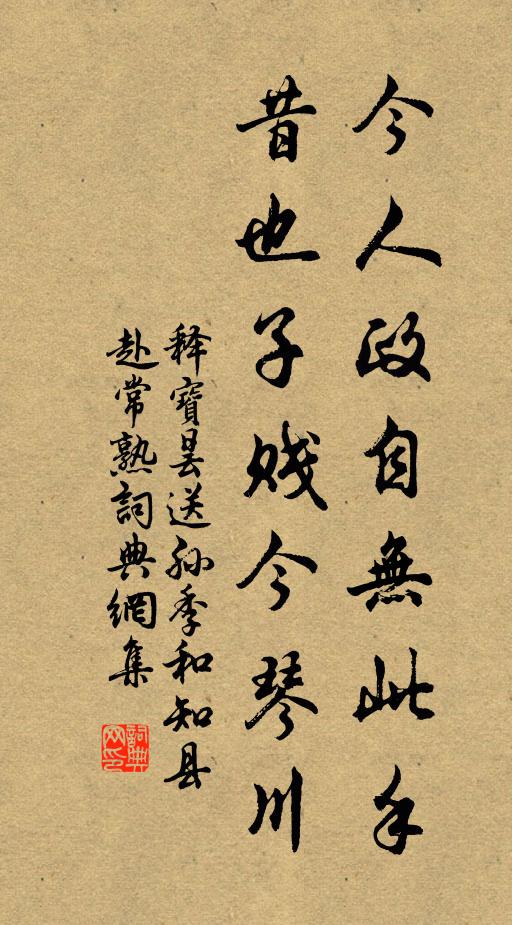 今人政自無此手
昔也子賤今琴川
释寶曇送孙季和知县
赴常熟詞典網集
詞典网印